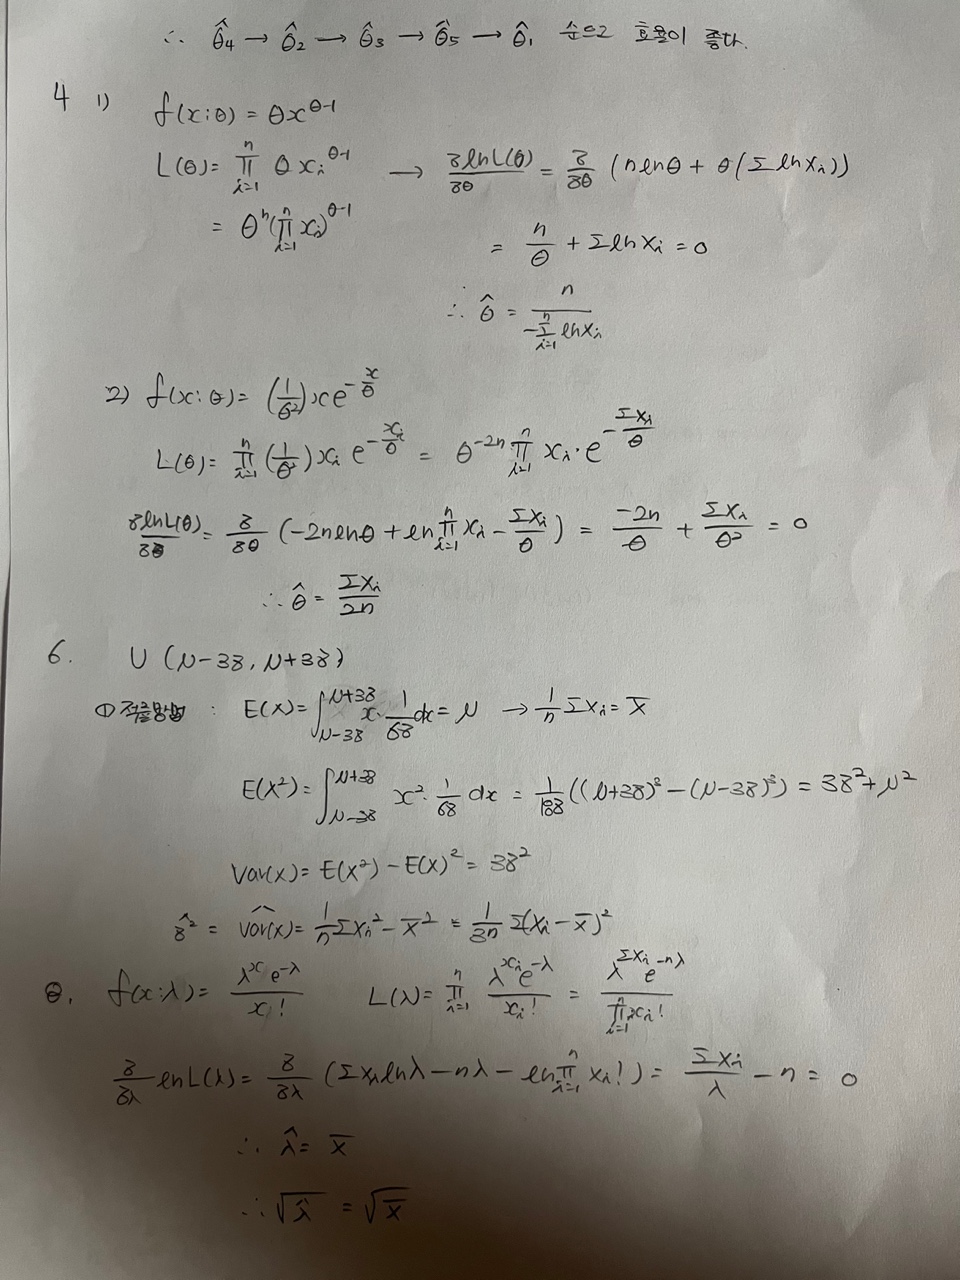 ∴ θ̂₄ → θ̂₂ → θ̂₃ → θ̂₅ → θ̂₁ 순으로 효율이 좋다.
4 1) f(x:θ) = θx^(θ-1)
L(θ) = ∏_{i=1}^{n} θ x_i^(θ-1) → ∂lnL(θ)/∂θ = ∂/∂θ (nlnθ + θ(Σ lnx_i))
= θ^n (∏_{i=1}^{n} x_i)^(θ-1) = n/θ + Σ ln x_i = 0
∴ θ̂ = n / (-Σ_{i=1}^{n} lnx_i)
2) f(x:θ) = (1/θ²) x e^(-x/θ)
L(θ) = ∏_{i=1}^{n} (1/θ²) x_i e^(-x_i/θ) = θ^(-2n) ∏_{i=1}^{n} x_i · e^(-Σx_i/θ)
∂lnL(θ)/∂θ = ∂/∂θ (-2nlnθ + ln∏_{i=1}^{n} x_i - Σx_i/θ) = -2n/θ + Σx_i/θ² = 0
∴ θ̂ = Σx_i/2n
6. U (μ-3δ, μ+3δ)
① 적률방법 : E(X) = ∫_{μ-3δ}^{μ+3δ} x · 1/6δ dx = μ → 1/n Σx_i = x̄
E(X²) = ∫_{μ-3δ}^{μ+3δ} x² · 1/6δ dx = 1/18δ ((μ+3δ)³ - (μ-3δ)³) = 3δ² + μ²
Var(x) = E(x²) - E(x)² = 3δ²
δ̂² = Var(x)^ = 1/n Σx_i² - x̄² = 1/3n Σ(x_i - x̄)²
θ. f(x:λ) = λ^x e^(-λ) / x! L(λ) = ∏_{i=1}^{n} λ^(x_i) e^(-λ) / x_i! = λ^(Σx_i) e^(-nλ) / ∏_{i=1}^{n} x_i!
∂/∂λ lnL(λ) = ∂/∂λ (Σx_i lnλ - nλ - ln∏_{i=1}^{n} x_i!) = Σx_i/λ - n = 0
∴ λ̂ = x̄
∴ √λ̂ = √x̄